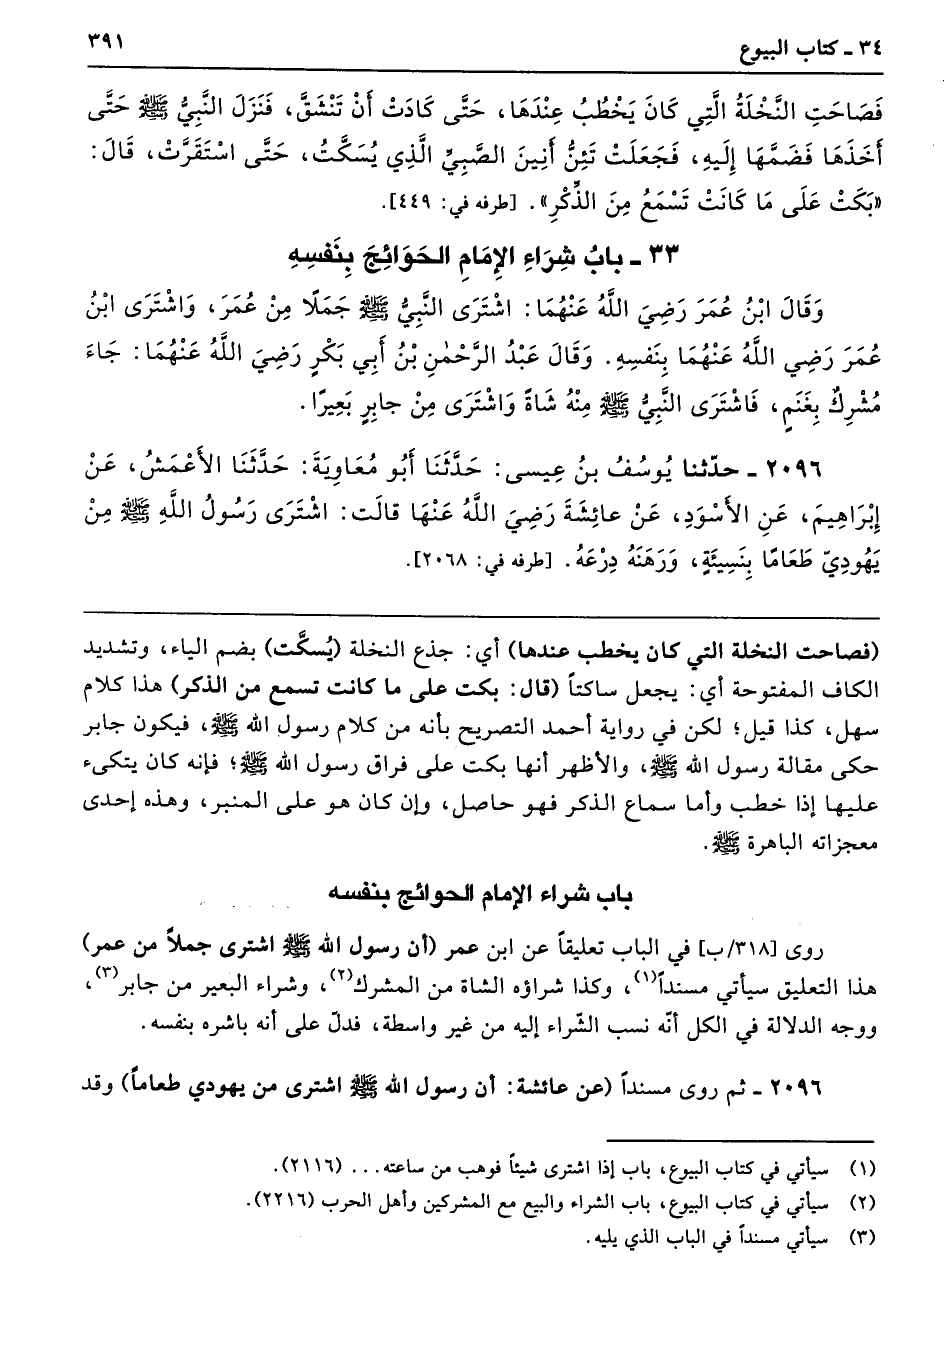 ٣٤ ـ كتاب البيوع
٣٩١
فَصَاحَتِ النَّخْلَةُ الَّتِي كَانَ يَخْطُبُ عِنْدَهَا، حَتَّى كَادَتْ أَنْ تَنْشَقَّ، فَنَزَلَ النَّبِيُّ ﷺ حَتَّى
أَخَذَهَا فَضَمَّهَا إِلَيهِ، فَجَعَلَتْ تَئِنُّ أَنِينَ الصَّبِيِّ الَّذِي يُسَكَّتُ، حَتَّى اسْتَقَرَّتْ، قَالَ:
«بَكَتْ عَلَى مَا كَانَتْ تَسْمَعُ مِنَ الذِّكْرِ». [طرفه في: ٤٤٩].
٣٣ ـ بابُ شِرَاءِ الإِمَامِ الحَوَائِجَ بِنَفسِهِ
وَقَالَ ابْنُ عُمَرَ رَضِيَ اللَّهُ عَنْهُمَا: اشْتَرَى النَّبِيُّ ﷺ جَمَلًا مِنْ عُمَرَ، وَاشْتَرَى ابْنُ
عُمَرَ رَضِي اللَّهُ عَنْهُمَا بِنَفسِهِ. وَقَالَ عَبْدُ الرَّحْمٰنِ بْنُ أَبِي بَكْرٍ رَضِيَ اللَّهُ عَنْهُمَا: جَاءَ
مُشْرِكٌ بِغَنَمٍ، فَاشْتَرَى النَّبِيُّ ﷺ مِنْهُ شَاةً وَاشْتَرَى مِنْ جابِرٍ بَعِيرًا.
٢٠٩٦ ـ حدّثنا يُوسُفُ بنُ عِيسى: حَدَّثَنَا أَبُو مُعَاوِيَةَ: حَدَّثَنَا الأَعْمَشُ، عَنْ
إِبْرَاهِيمَ، عَنِ الأَسْوَدِ، عَنْ عائِشَةَ رَضِيَ اللَّهُ عَنْهَا قالَت: اشْتَرَى رَسُولُ اللَّهِ ﷺ مِنْ
يَهُودِيّ طَعَامًا بِنَسِيئَةٍ، وَرَهَنَهُ دِرْعَهُ. [طرفه في: ٢٠٦٨].
(فصاحت النخلة التي كان يخطب عندها) أي: جذع النخلة (يُسكَّت) بضم الياء، وتشديد
الكاف المفتوحة أي: يجعل ساكتاً (قال: بكت على ما كانت تسمع من الذكر) هذا كلام
سهل، كذا قيل؛ لكن في رواية أحمد التصريح بأنه من كلام رسول الله ﷺ، فيكون جابر
حكى مقالة رسول الله ﷺ، والأظهر أنها بكت على فراق رسول الله ﷺ؛ فإنه كان يتكىء
عليها إذا خطب وأما سماع الذكر فهو حاصل، وإن كان هو على المنبر، وهذه إحدى
معجزاته الباهرة ﷺ.
باب شراء الإمام الحوائج بنفسه
روى [٣١٨/ب] في الباب تعليقاً عن ابن عمر (أن رسول الله ﷺ اشترى جملاً من عمر)
هذا التعليق سيأتي مسنداً(١)، وكذا شراؤه الشاة من المشرك(٢)، وشراء البعير من جابر(٣)،
ووجه الدلالة في الكل أنّه نسب الشّراء إليه من غير واسطة، فدلّ على أنه باشره بنفسه.
٢٠٩٦ ـ ثم روى مسنداً (عن عائشة: أن رسول الله ﷺ اشترى من يهودي طعاماً) وقد
(١) سيأتي في كتاب البيوع، باب إذا اشترى شيئاً فوهب من ساعته... (٢١١٦).
(٢) سيأتي في كتاب البيوع، باب الشراء والبيع مع المشركين وأهل الحرب (٢٢١٦).
(٣) سيأتي مسنداً في الباب الذي يليه.